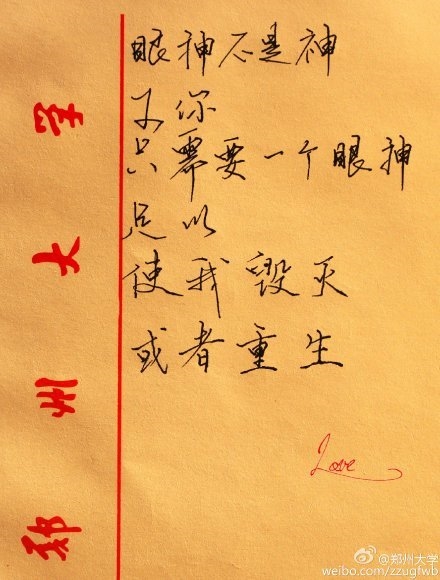 眼神不是神
你
只需要一个眼神
足以
使我毁灭
或者重生
Love
郑州大学
@郑州大学
weibo.com/zzugfwb